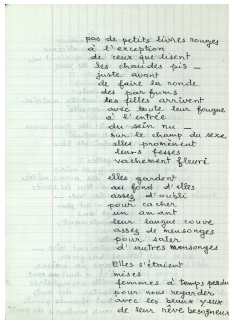 pas de petits livres rouges
à l'exception
de ceux que lisent
les chaudes pis _
juste avant
de faire la ronde
des parfums
les filles arrivent
avec toute leur fougue
à l'entrée
du sein nu _
sur le champ du sexe
elles promènent
leurs fesses
vachement fleuri
elles gardent
au fond d'elles
assez d'oubli
pour cacher
un amant
leur langue couve
assez de mensonges
pour saler
d'autres mensonges
Elles s'étaient
mises
femmes à temps perdu
pour nous regarder
avec les beaux yeux
de leur rêve besogneux